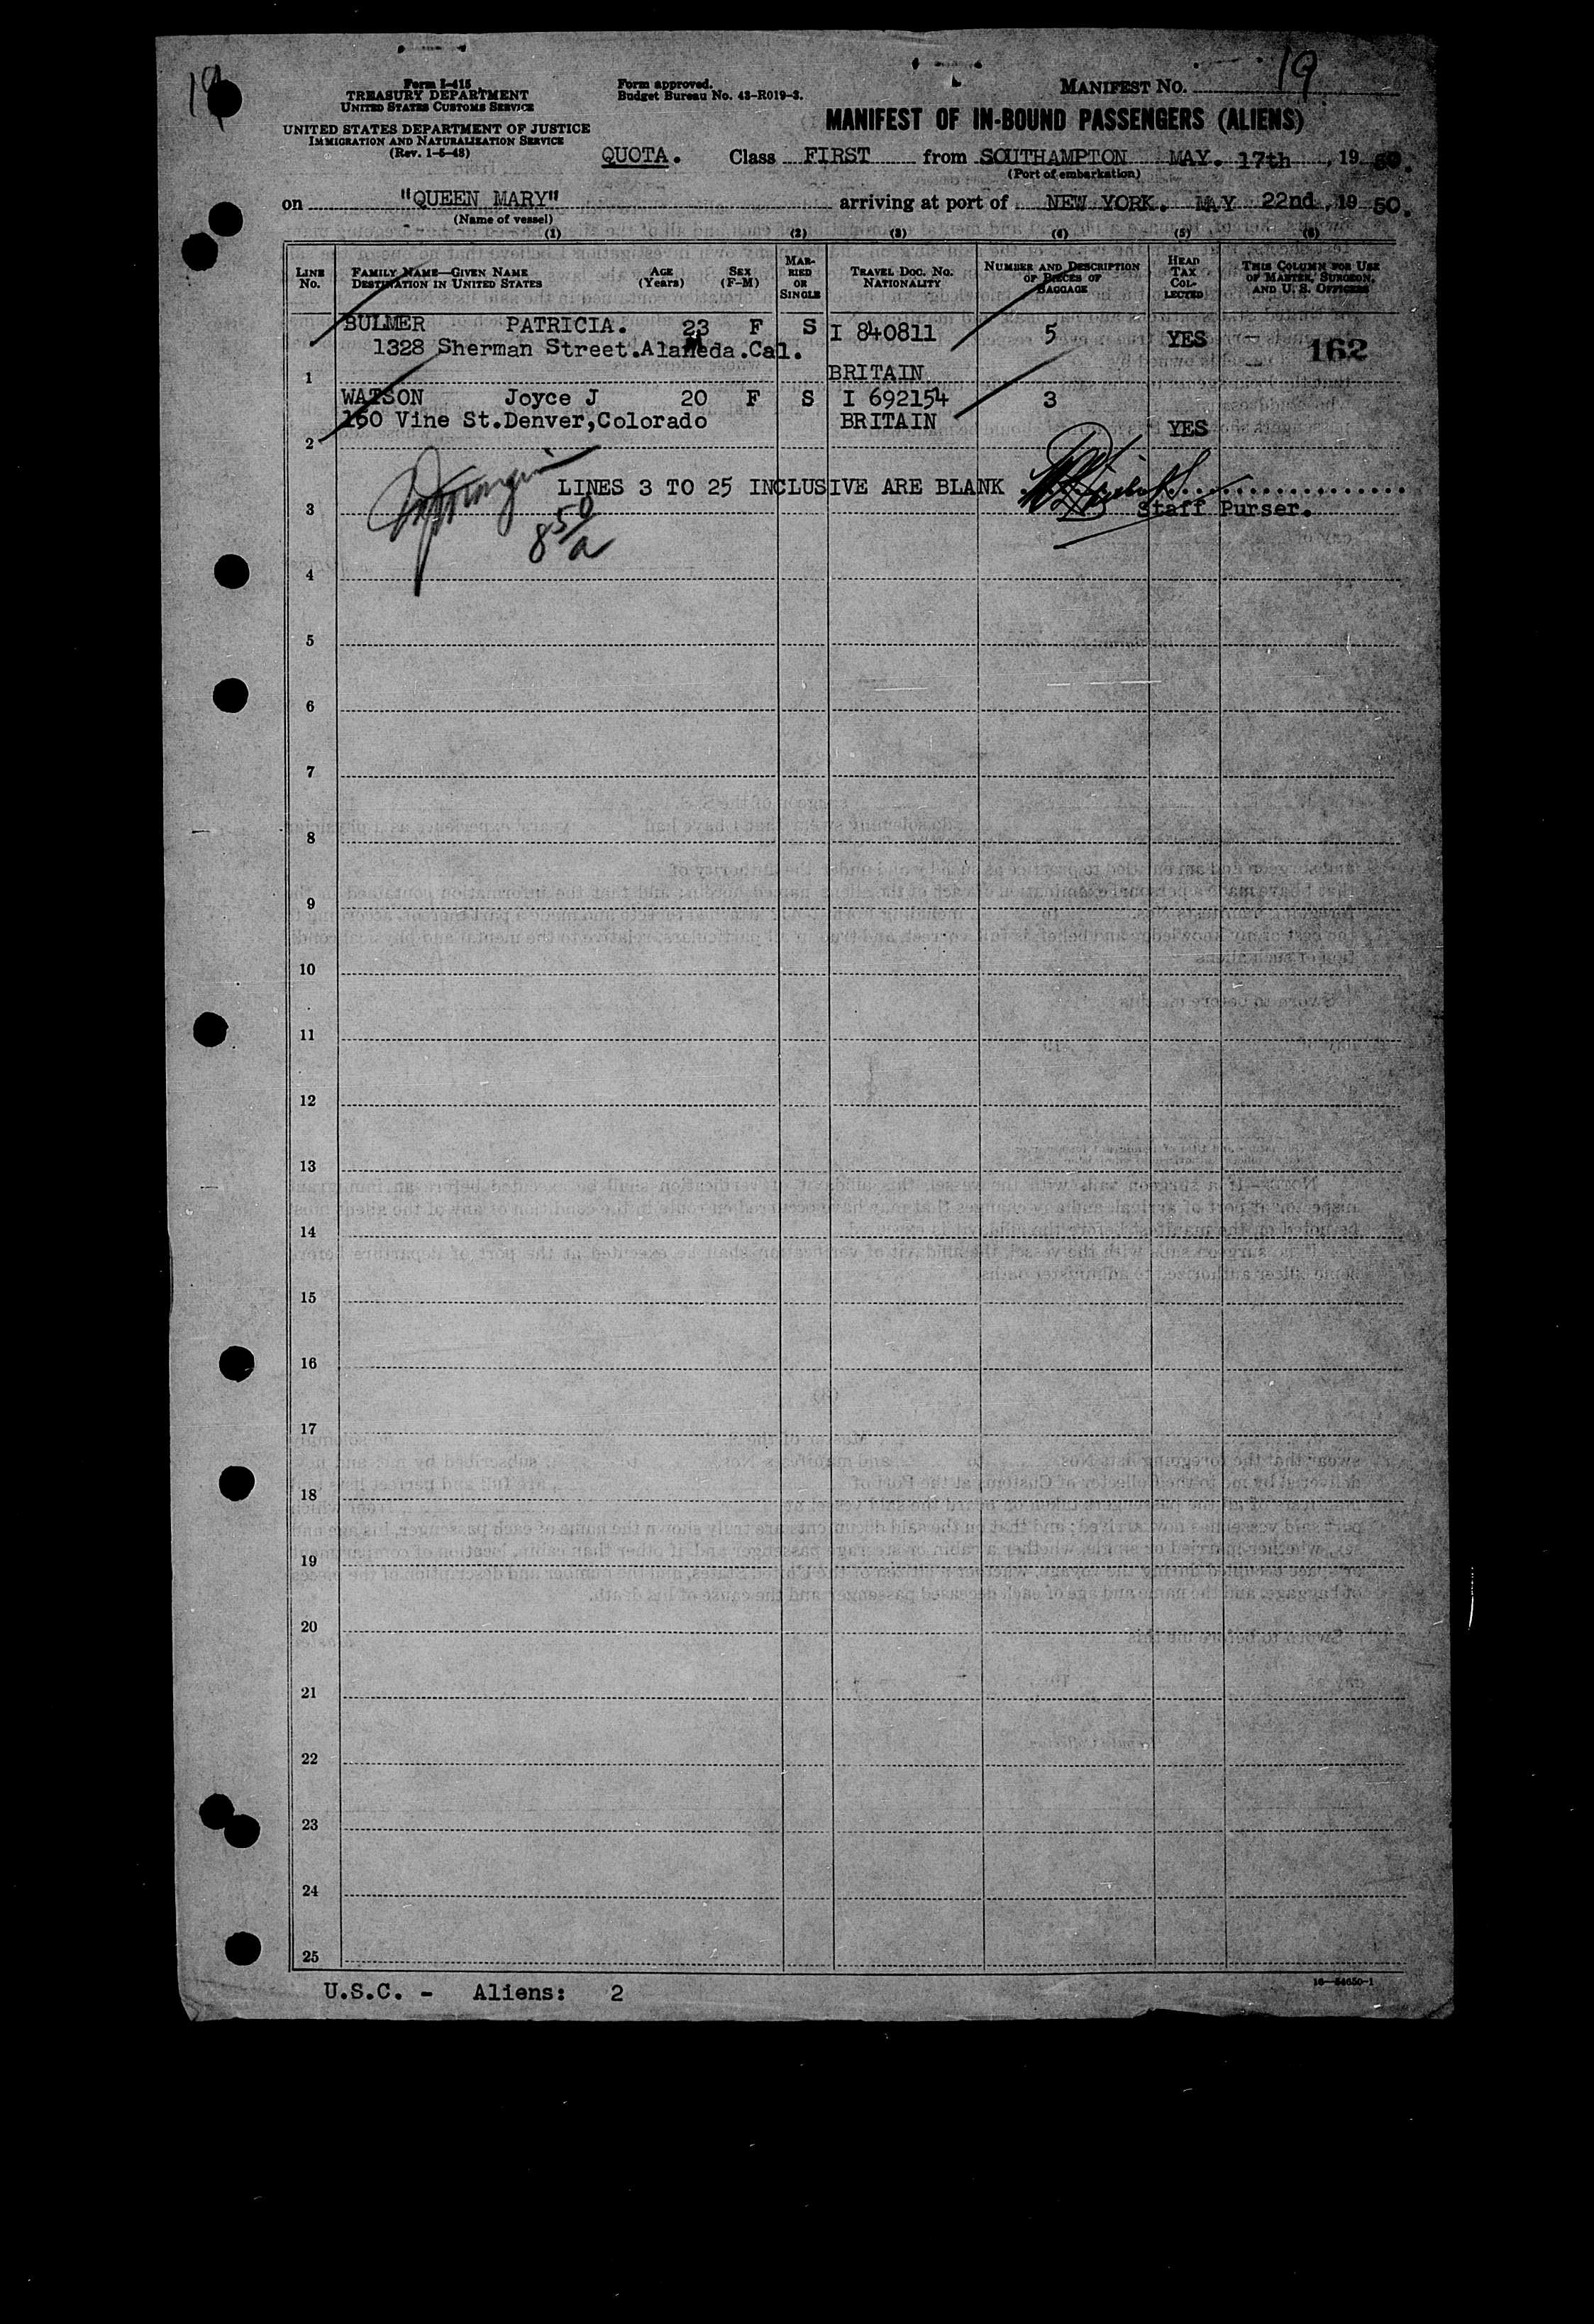 19
19
Form I-415
TREASURY DEPARTMENT
UNITED STATES CUSTOMS SERVICE
UNITED STATES DEPARTMENT OF JUSTICE
IMMIGRATION AND NATURALIZATION SERVICE
(Rev. 1-5-48)
Form approved.
Budget Bureau No. 43-R019-3.
MANIFEST No.
MANIFEST OF IN-BOUND PASSENGERS (ALIENS)
QUOTA. Class FIRST from SOUTHAMPTON MAY. 17th, 19 50.
(Port of embarkation)
on "QUEEN MARY" arriving at port of NEW YORK. MAY 22nd, 19 50.
(Name of vessel)
(1) (2) (3) (4) (5) (6)
LINE No. FAMILY NAME—GIVEN NAME DESTINATION IN UNITED STATES AGE (Years) SEX (F-M) MARRIED OR SINGLE TRAVEL DOC. No. NATIONALITY NUMBER AND DESCRIPTION OF PIECES OF BAGGAGE HEAD TAX COLLECTED THIS COLUMN FOR USE OF MASTER, SURGEON, AND U. S. OFFICERS
BULMER PATRICIA. 23 F S I 840811 5 YES 162
1328 Sherman Street.Alameda.Cal.
1 BRITAIN
WATSON Joyce J 20 F S I 692154 3
160 Vine St.Denver,Colorado BRITAIN YES
2
LINES 3 TO 25 INCLUSIVE ARE BLANK
3 Staff Purser.
850/a
4
5
6
7
8
9
10
11
12
13
14
15
16
17
18
19
20
21
22
23
24
25
U.S.C. - Aliens: 2
16—54650-1